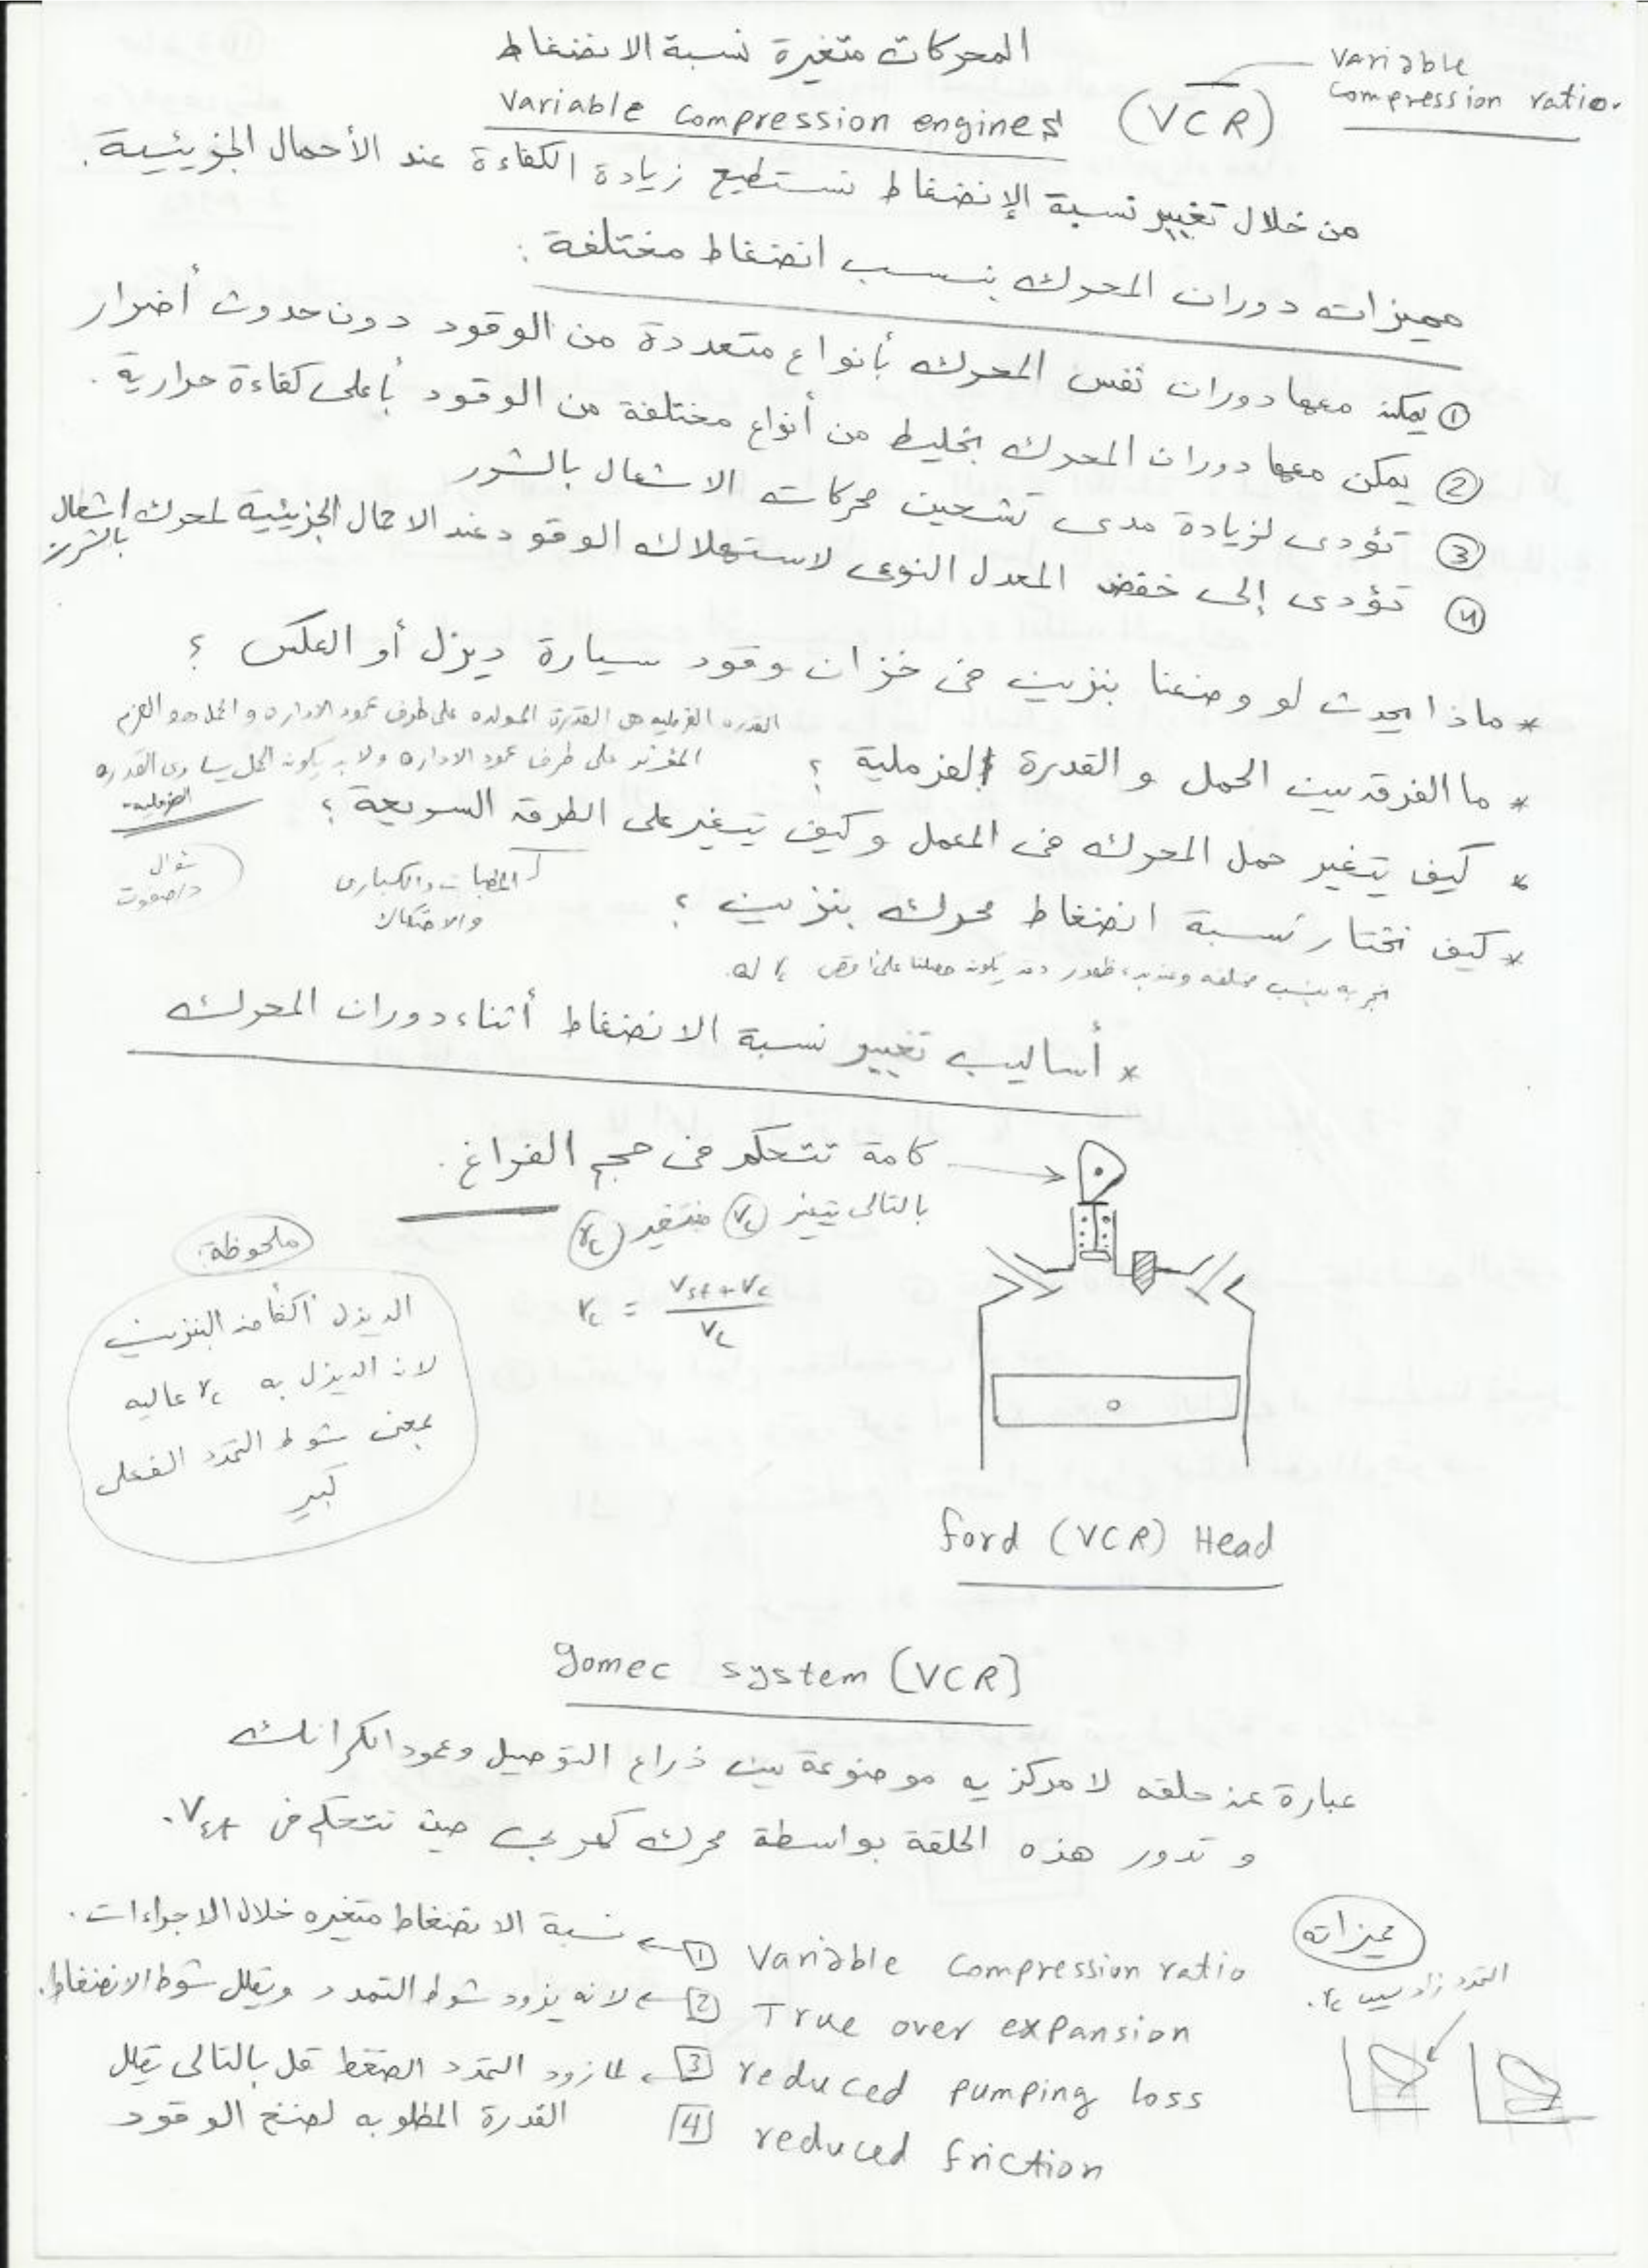 المحركات متغيرة نسبة الانضغاط
Variable compression engines (VCR)
Variable
compression ratio.
من خلال تغيير نسبة الإنضغاط نستطيع زيادة الكفاءة عند الأحمال الجزيئية.
مميزات دوران المحرك بنسب انضغاط مختلفة :
① يمكن معها دوران نفس المحرك بأنواع متعددة من الوقود دون حدوث أضرار
② يمكن معها دوران المحرك بخليط من أنواع مختلفة من الوقود بأعلى كفاءة حرارية .
③ تؤدى لزيادة مدى تشحين محركات الاشعال بالشرر
④ تؤدى إلى خفض المعدل النوعى لاستهلاك الوقود عند الاحمال الجزيئية لمحرك اشعال بالشرر
* ماذا يحدث لو وضعنا بنزين فى خزان وقود سيارة ديزل أو العكس ؟
* ما الفرق بين الحمل والقدرة الفرملية ؟
القدره الفرمليه هى القدرة المولده على طرف عمود الاداره والحمل هو العزم
المؤثر على طرف عمود الاداره ولابد يكون الحمل يساوى القدره
الفرمليه
* كيف يتغير حمل المحرك فى المعمل وكيف يتغير على الطرق السريعة ؟
المطبات والكبارى
والاحتكاك
سؤال
د/صفوت
* كيف نختار نسبة انضغاط محرك بنزين ؟
* أساليب تغيير نسبة الانضغاط أثناء دوران المحرك
كامة تتحكم فى حجم الفراغ .
بالتالى يتغير Vc فتتغير rc
rc = (Vst + Vc) / Vc
ملحوظة:
الديزل أكفأ من البنزين
لان الديزل به rc عاليه
بمعنى شوط التمدد الفعلى
كبير
ford (VCR) Head
gomec system (VCR)
عبارة عن حلقه لا مركزيه موضوعة بين ذراع التوصيل وعمود الكرانك
و تدور هذه الحلقة بواسطة محرك كهربى حيث تتحكم فى Vst.
مميزاته
التمدد زاد بسبب rc.
1 Variable compression ratio ← نسبة الانضغاط متغيره خلال الاجراءات.
2 True over expansion ← لانه يزود شوط التمدد ويقلل شوط الانضغاط.
3 reduced pumping loss ← لما زود التمدد الضغط قل بالتالى يقلل
القدرة المطلوبه لضخ الوقود
4 reduced friction